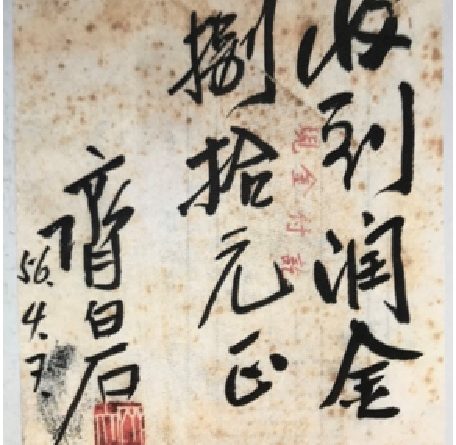 收到润金
現金付訖
捌拾元正
齊白石
56.4.7.